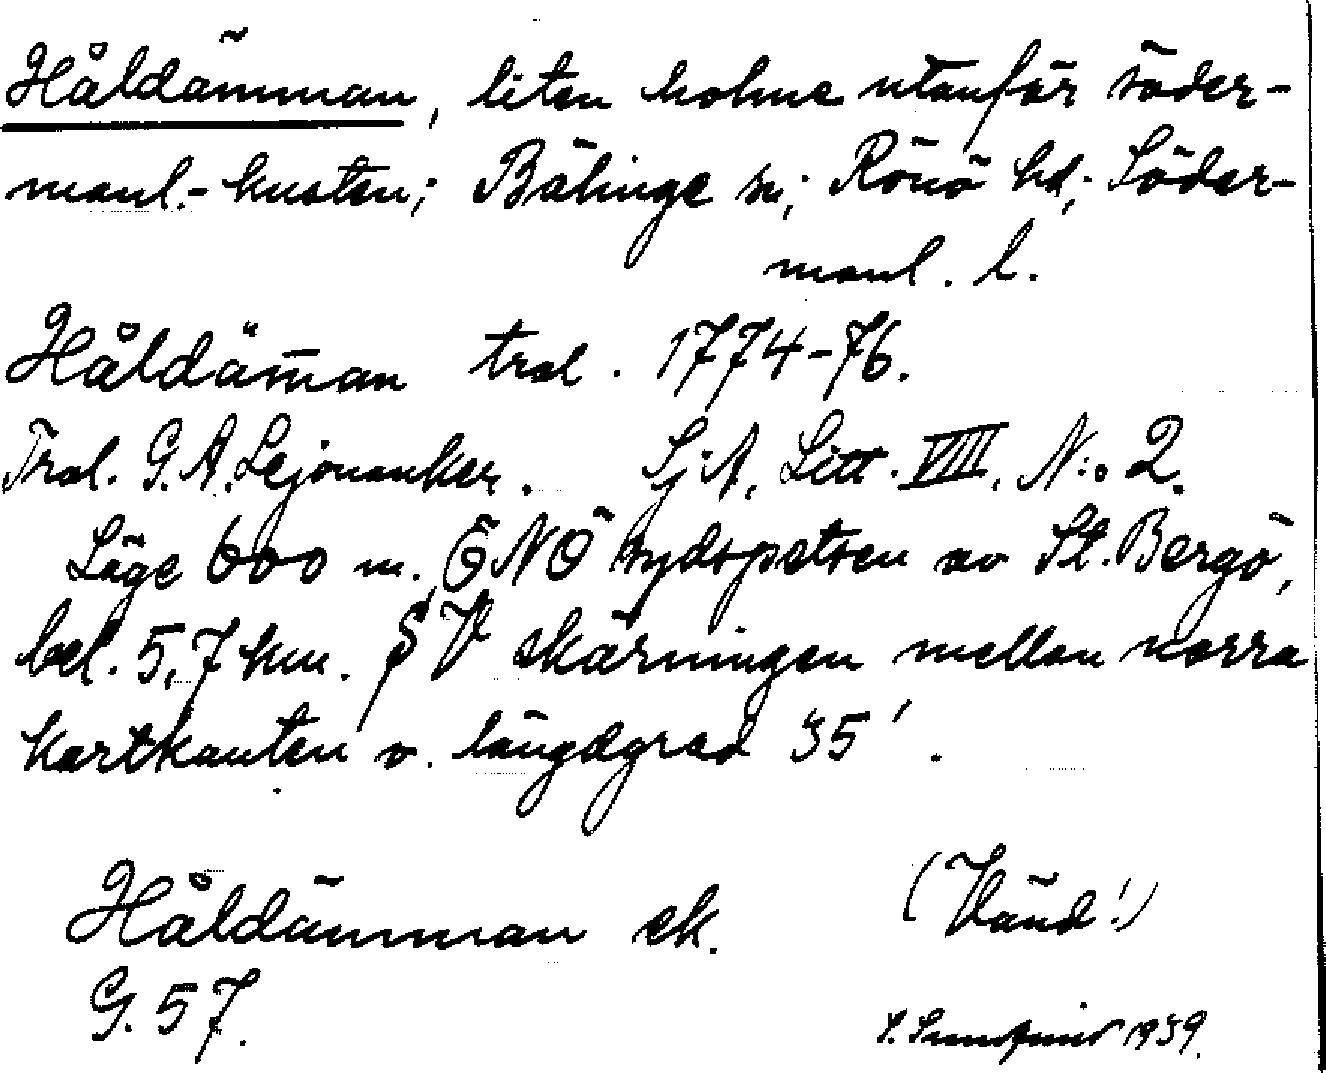 Håldämman, liten holme utanför söder-
manl.-kusten; Bälinge sn; Rönö hd; Söder-
manl. l.
Håldäm̄an trol. 1774-76.
Trol. G. A. Lejonanker. Sj.A. Litt. VIII. N:o 2.
Läge 600 m. ÖNÖ sydspetsen av St. Bergö,
bel. 5,7 km. S V skärningen mellan norra
kartkanten o. längdgrad 35'.
Håldämman ek. (Vänd!)
G. 57.
1939.